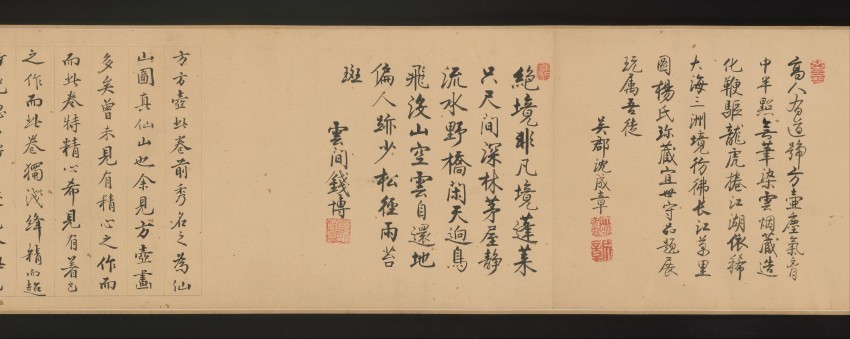 高人有道號方壺塵氣胷
中半點無筆染雲烟藏造
化鞭驅龍虎捲江湖依稀
大海三洲境彷彿長江萬里
圖楊氏珍藏宜世守品題展
玩属吾徒
吴郡沈成章
絕境非凡境蓬萊
只尺間深林茅屋静
流水野橋閑天迥鳥
飛没山空雲自還地
偏人跡少松徑雨苔
斑
雲间錢博
方方壺此卷前秀名之為仙
山圖真仙山也余見方壺畫
多矣曾未見有精心之作而
而此卷特精心希見有着色
之作而此卷獨淺絳精而超